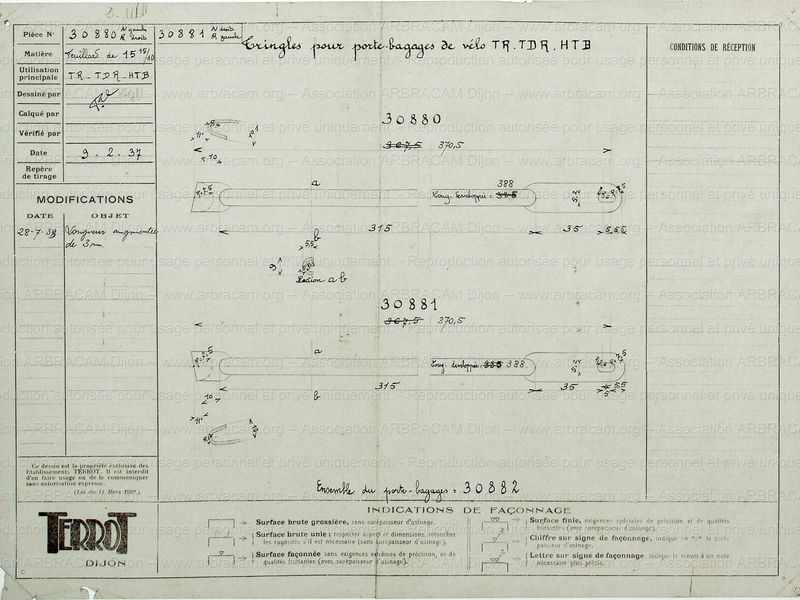 Pièce N° 30880 N gauche R droite 30881 N droite R gauche
Tringles pour porte-bagages de vélo TR.TDR.HTB
CONDITIONS DE RÉCEPTION
Matière Feuillard de 15 15/10
Utilisation principale TR-TDR-HTB
Dessiné par
Calqué par
Vérifié par
Date 9.2.37
Repère de tirage
MODIFICATIONS
DATE OBJET
28-7-39 Longueur augmentée
de 3mm
30880
367,5 370,5
a
388
Long. développée = 385
315
35
5,5
b
5,5
9
Section ab
30881
367,5 370,5
a
Long. développée = 385 388
315
35
5,5
b
Ensemble du porte-bagages = 30882
Ce dessin est la propriété exclusive des
Etablissements TERROT. Il est interdit
d'en faire usage ou de le communiquer
sans autorisation expresse.
(Loi du 11 Mars 1902.)
TERROT
DIJON
INDICATIONS DE FAÇONNAGE
Surface brute grossière, sans surépaisseur d'usinage.
Surface brute unie; respecter aspect et dimensions, retoucher
les rugosités s'il est nécessaire (sans surépaisseur d'usinage).
Surface façonnée sans exigences extrêmes de précision, ni de
qualités frottantes (avec surépaisseur d'usinage).
Surface finie, exigences spéciales de précision et de qualités
frottantes (avec surépaisseur d'usinage).
Chiffre sur signe de façonnage, indique en m/m la surépaisseur d'usinage.
Lettre sur signe de façonnage, indique le renvoi à un nota
nécessaire plus précis.
www.arbracam.org – Association ARBRACAM Dijon
Reproduction autorisée pour usage personnel et privé uniquement